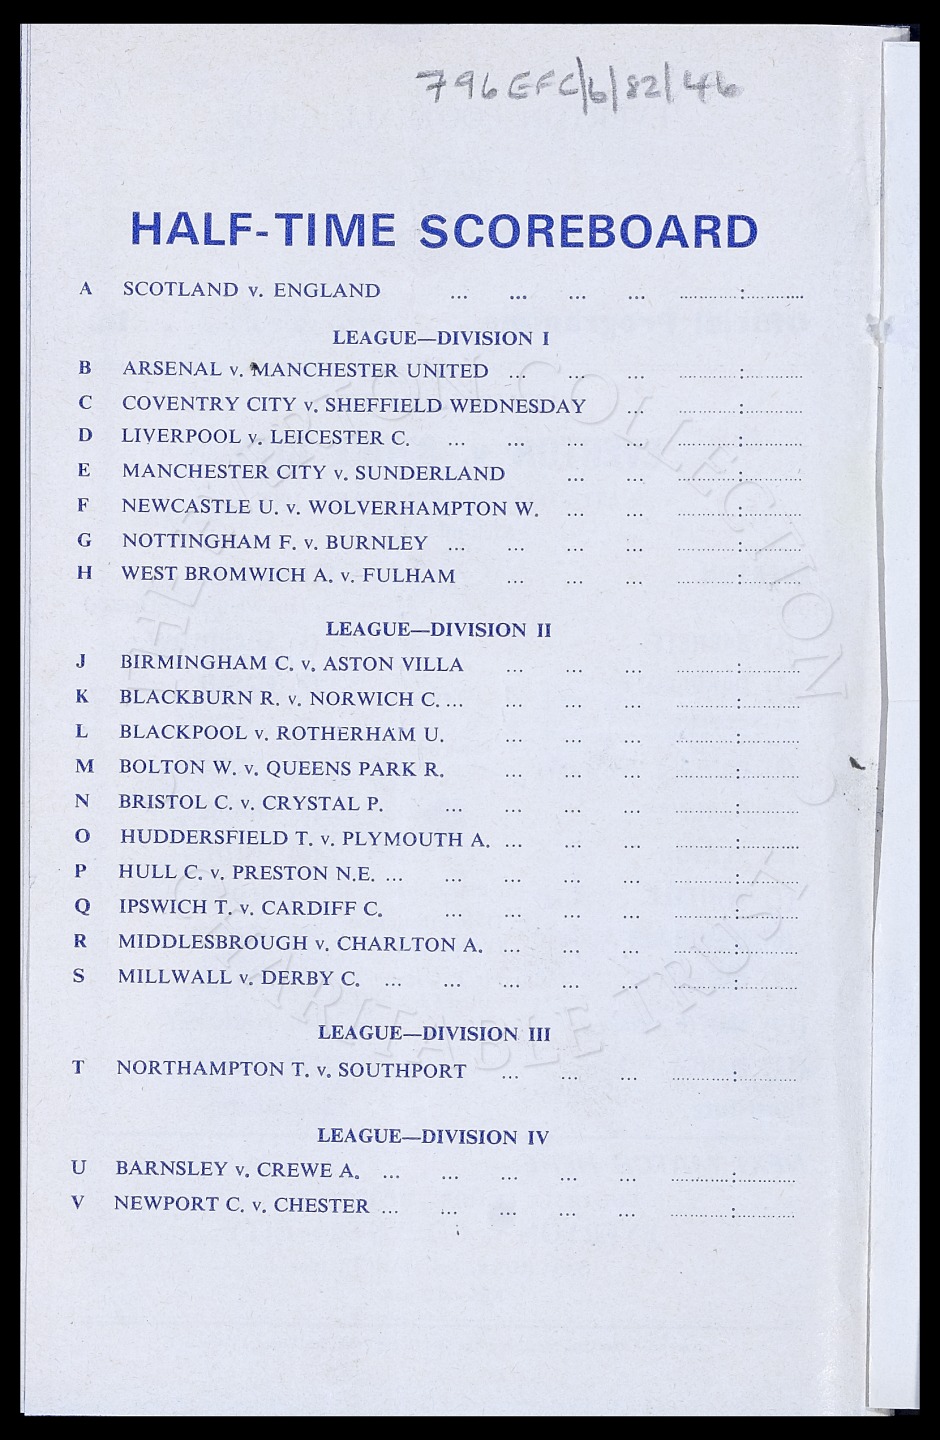 796 EFC/6/82/46
HALF-TIME SCOREBOARD
A SCOTLAND v. ENGLAND ... ... ... ... ............:...........
LEAGUE—DIVISION I
B ARSENAL v. MANCHESTER UNITED ... ... ... ............:...........
C COVENTRY CITY v. SHEFFIELD WEDNESDAY ... ............:...........
D LIVERPOOL v. LEICESTER C. ... ... ... ... ............:...........
E MANCHESTER CITY v. SUNDERLAND ... ... ............:...........
F NEWCASTLE U. v. WOLVERHAMPTON W. ... ... ............:...........
G NOTTINGHAM F. v. BURNLEY ... ... ... ... ............:...........
H WEST BROMWICH A. v. FULHAM ... ... ... ............:...........
LEAGUE—DIVISION II
J BIRMINGHAM C. v. ASTON VILLA ... ... ... ............:...........
K BLACKBURN R. v. NORWICH C. ... ... ... ... ............:...........
L BLACKPOOL v. ROTHERHAM U. ... ... ... ............:...........
M BOLTON W. v. QUEENS PARK R. ... ... ... ............:...........
N BRISTOL C. v. CRYSTAL P. ... ... ... ... ............:...........
O HUDDERSFIELD T. v. PLYMOUTH A. ... ... ... ............:...........
P HULL C. v. PRESTON N.E. ... ... ... ... ... ............:...........
Q IPSWICH T. v. CARDIFF C. ... ... ... ... ............:...........
R MIDDLESBROUGH v. CHARLTON A. ... ... ... ............:...........
S MILLWALL v. DERBY C. ... ... ... ... ... ............:...........
LEAGUE—DIVISION III
T NORTHAMPTON T. v. SOUTHPORT ... ... ... ............:...........
LEAGUE—DIVISION IV
U BARNSLEY v. CREWE A. ... ... ... ... ... ............:...........
V NEWPORT C. v. CHESTER ... ... ... ... ... ............:...........
THE EVERTON COLLECTION
CHARITABLE TRUST